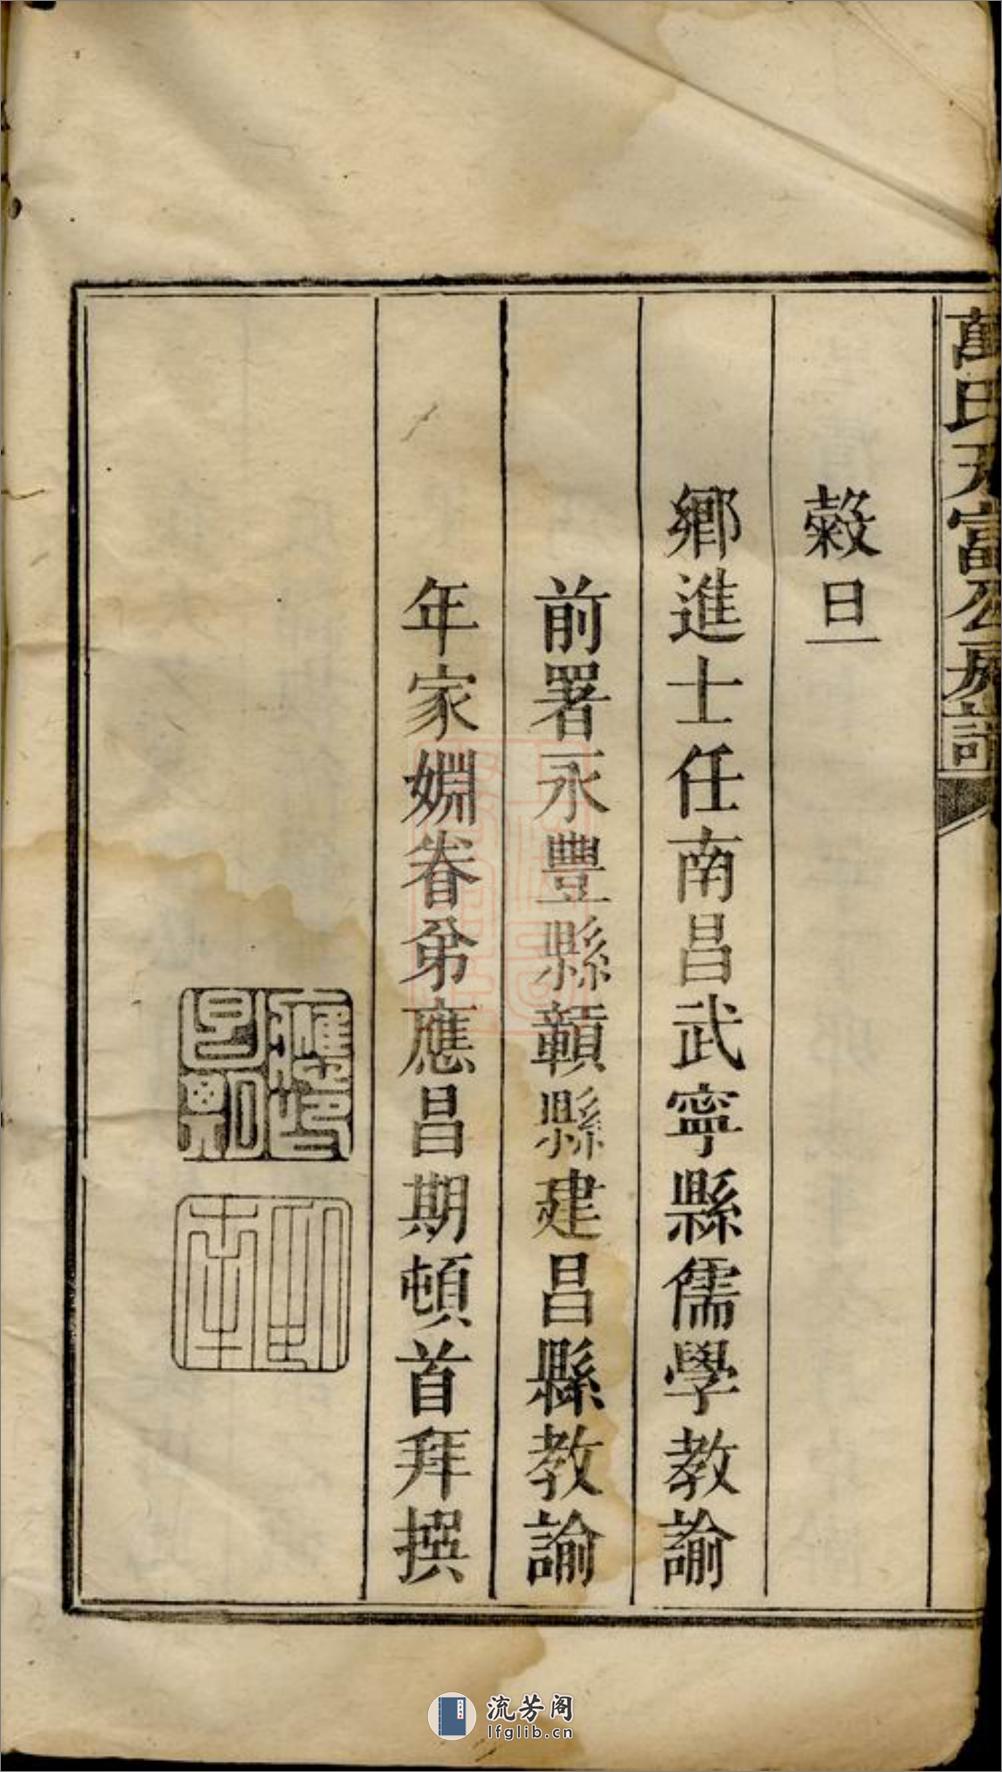 萬氏天富公房譜
穀旦
鄉進士任南昌武寧縣儒學教諭
前署永豐縣贑縣建昌縣教諭
年家姻眷弟應昌期頓首拜撰
流芳阁
lfglib.cn